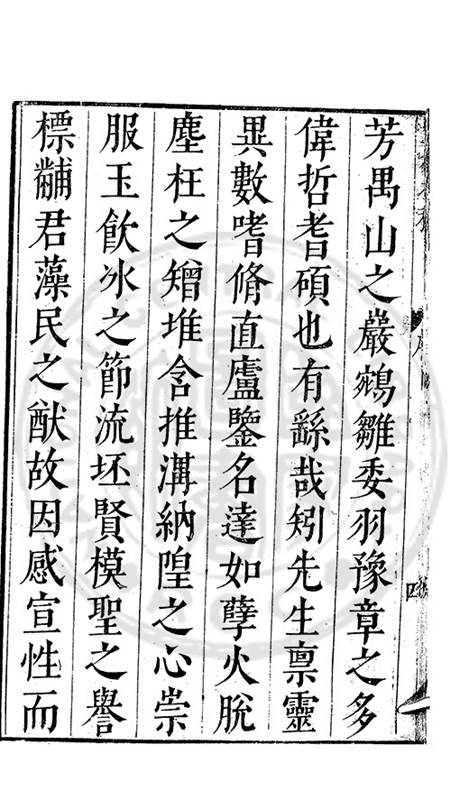 芳禺山之巖鵷雛委羽豫章之多
偉哲耆碩也有繇哉矧先生禀靈
異數嗜脩直廬鑒名達如孽火脫
塵枉之矰堆含推溝納隍之心崇
服玉飲冰之節流坯賢模聖之譽
標黼君藻民之猷故因感宣性而
序
四